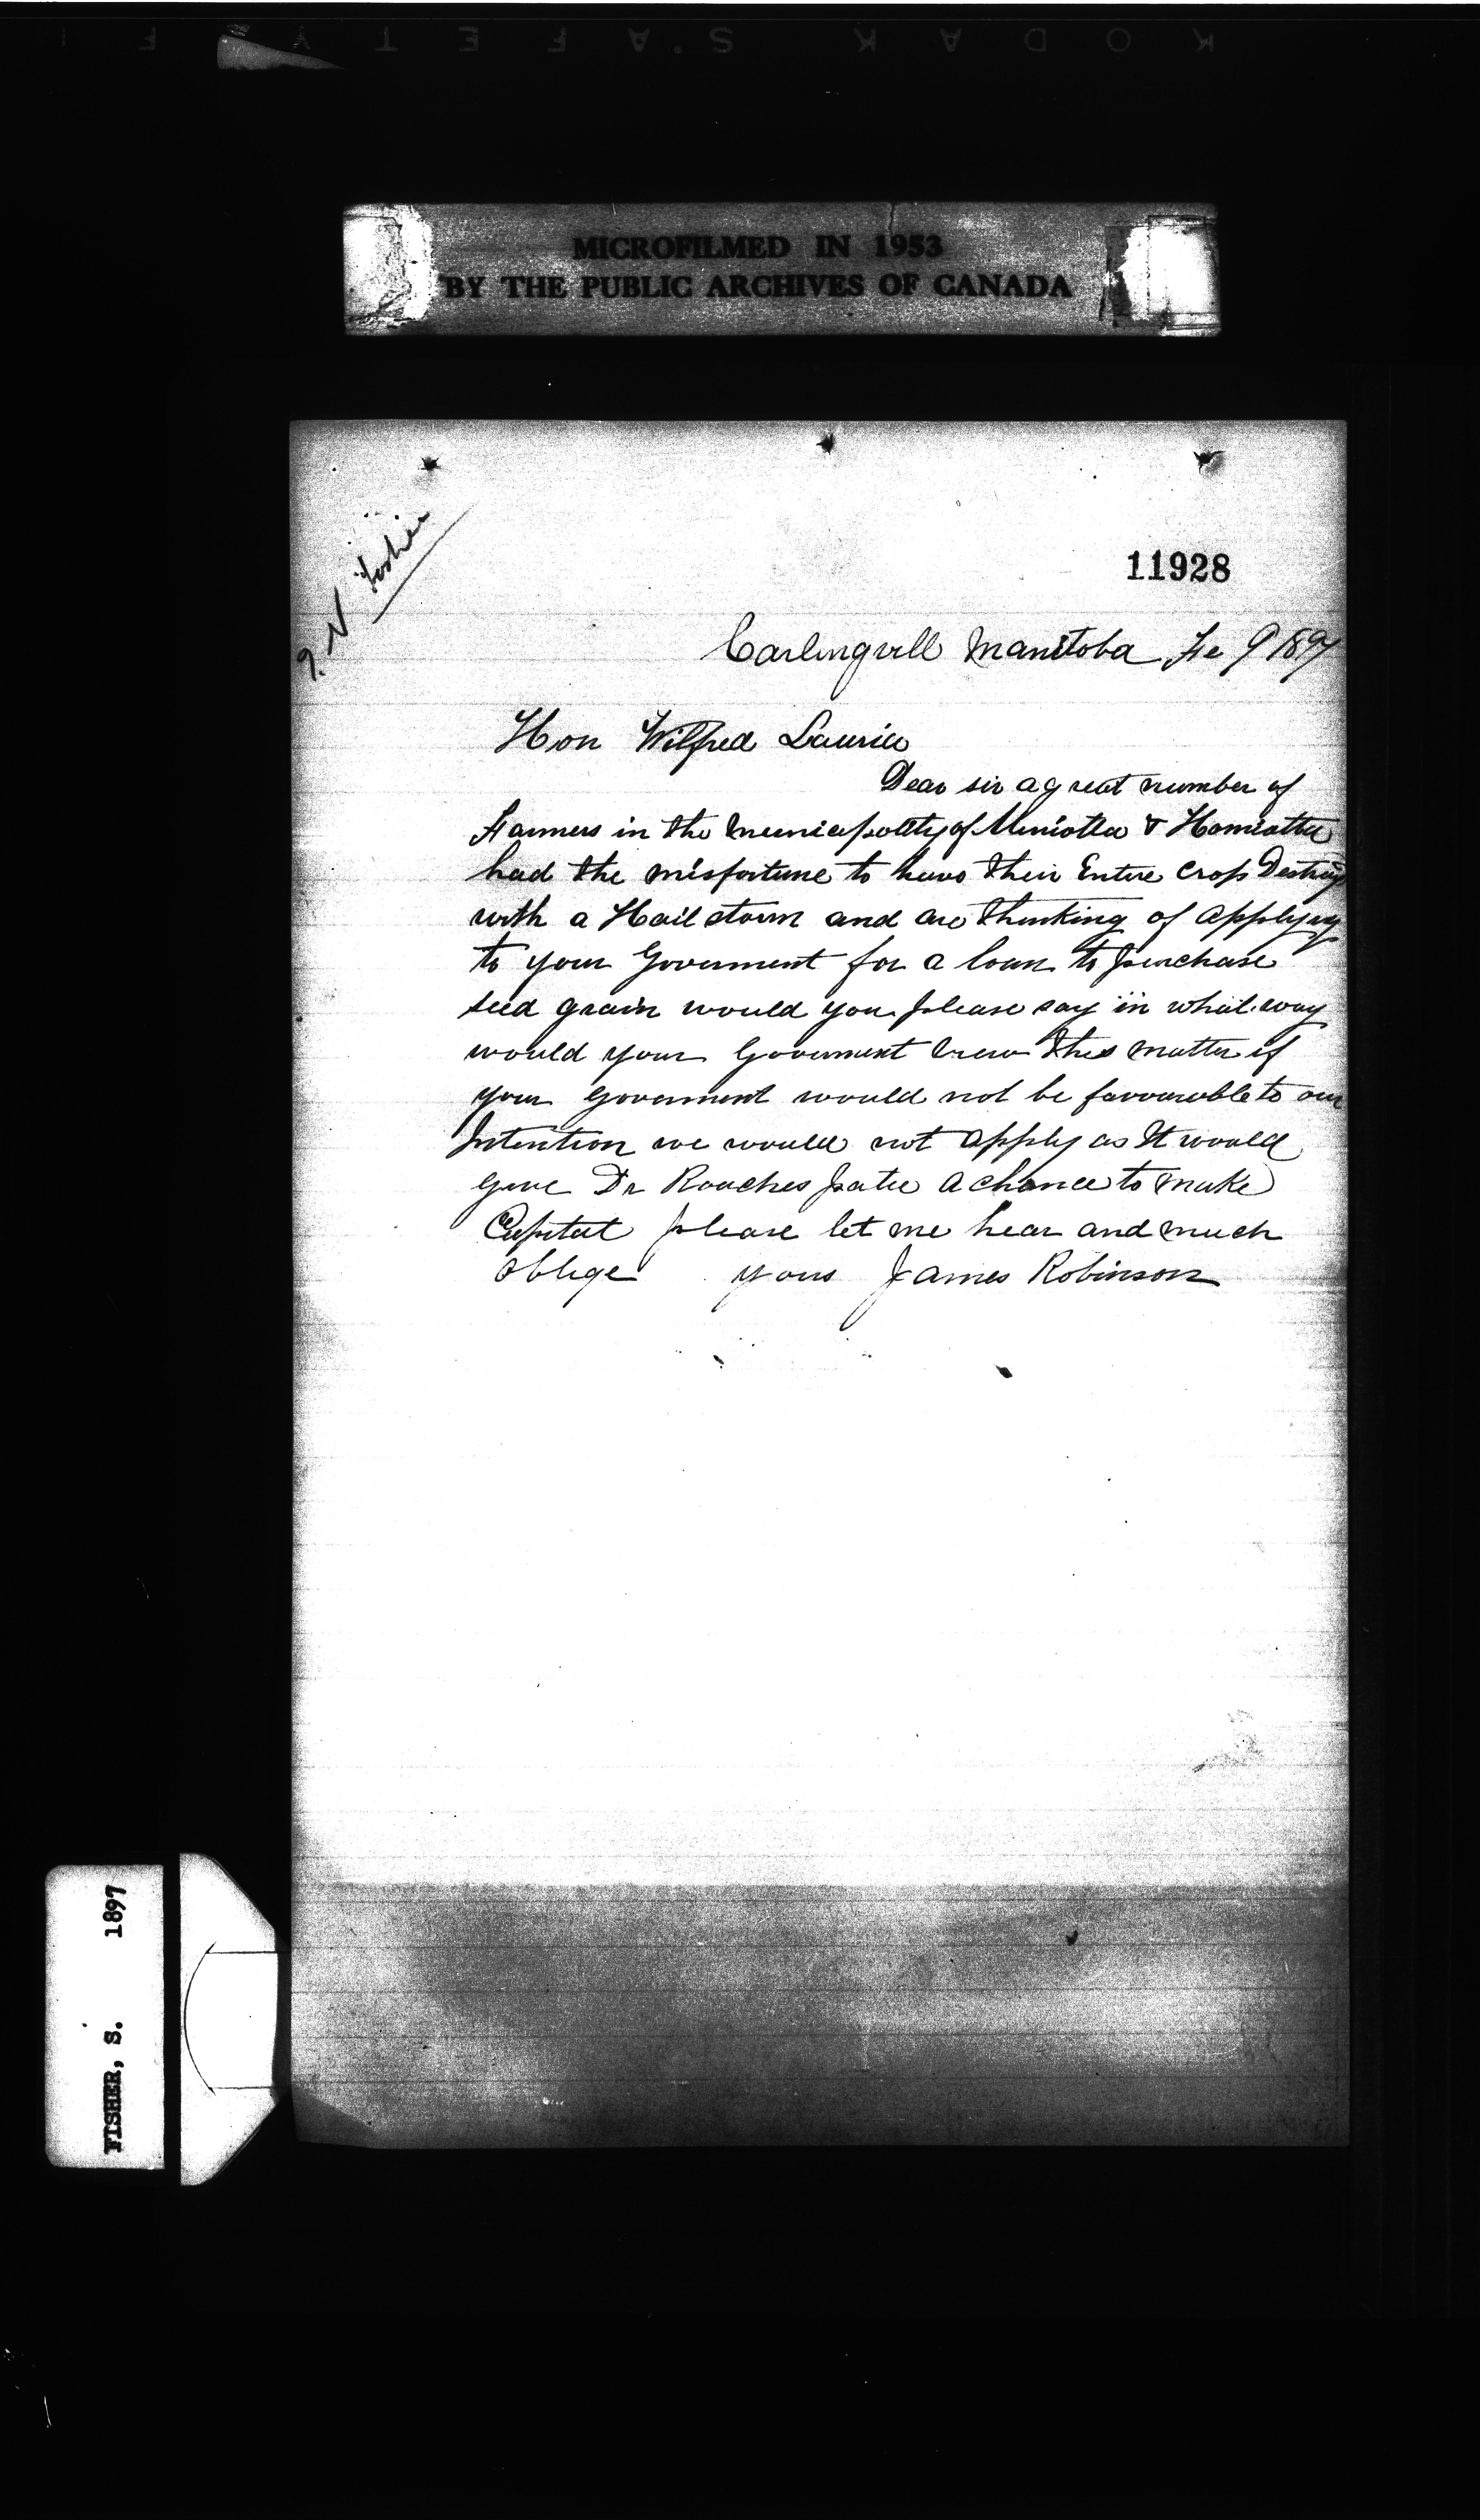 KODAK SAFETY F
MICROFILMED IN 1953
BY THE PUBLIC ARCHIVES OF CANADA
11928
Carlingvill Manitoba Fe 9 1897
Hon Wilfred Laurier
Dear sir a great number of
Farmers in the Municipality of Miniotta & Hamiotta
had the misfortune to have their Entire Crop Destroy
with a Hail storm and are thinking of applying
to your Goverment for a loan to purchase
seed grain would you please say in what way
would your Goverment view this matter if
your Goverment would not be favourable to our
Intention we would not apply as It would
give Dr Roaches a chance to make
Capital please let me hear and much
oblige yours James Robinson
FISHER, S. 1897